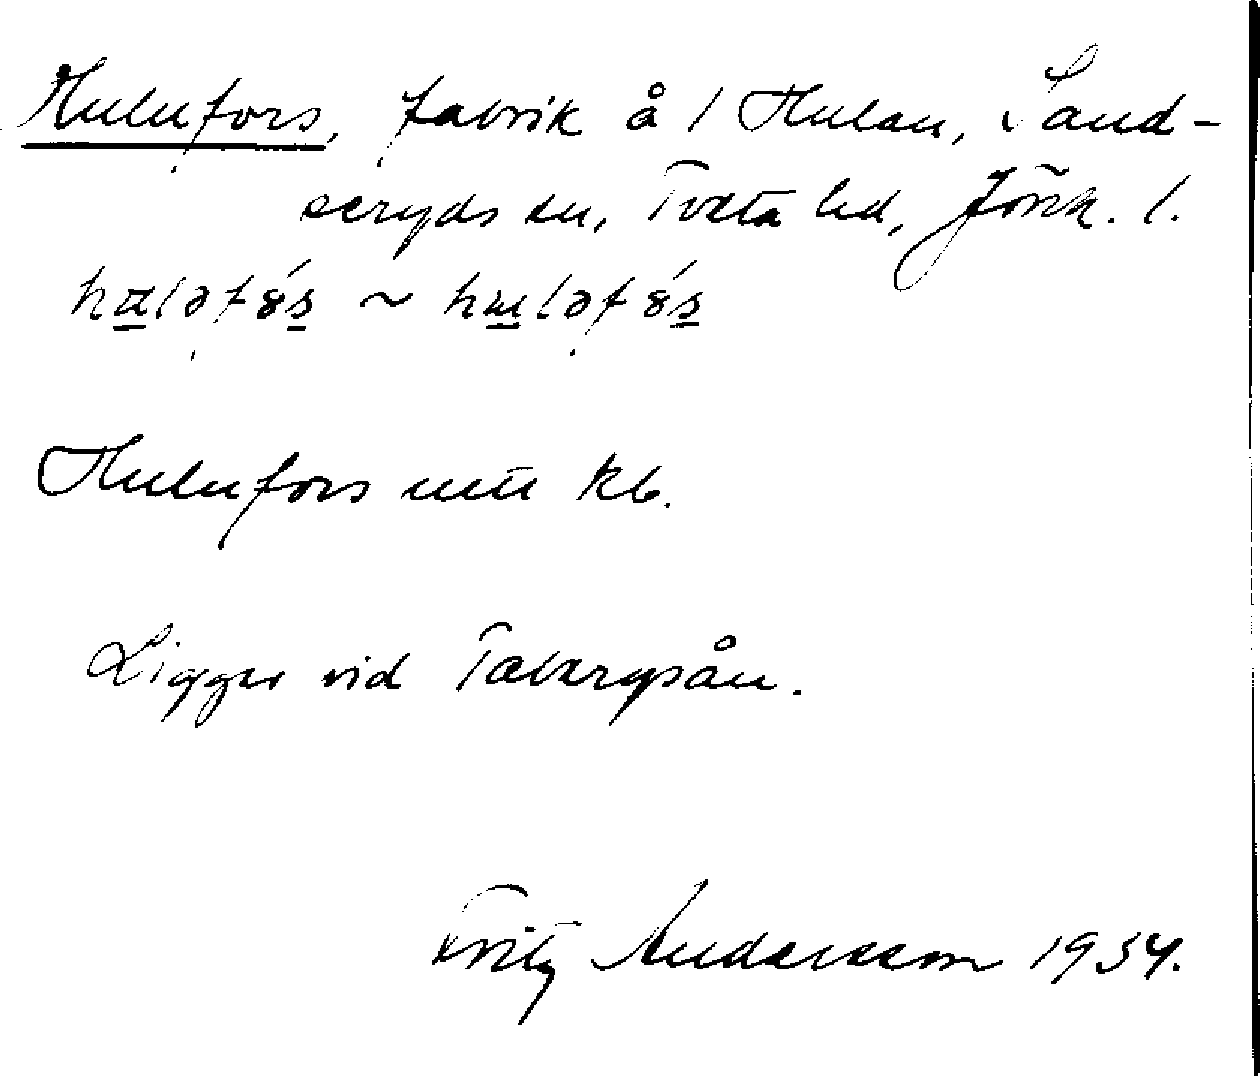 Hulufors, fabrik å 1 Hulan, Sand-
seryds sn, Tveta hd, Jönk. l.
Hulufors mtl kb.
Ligger vid Tabergsån.
Fritz Andersson 1934.